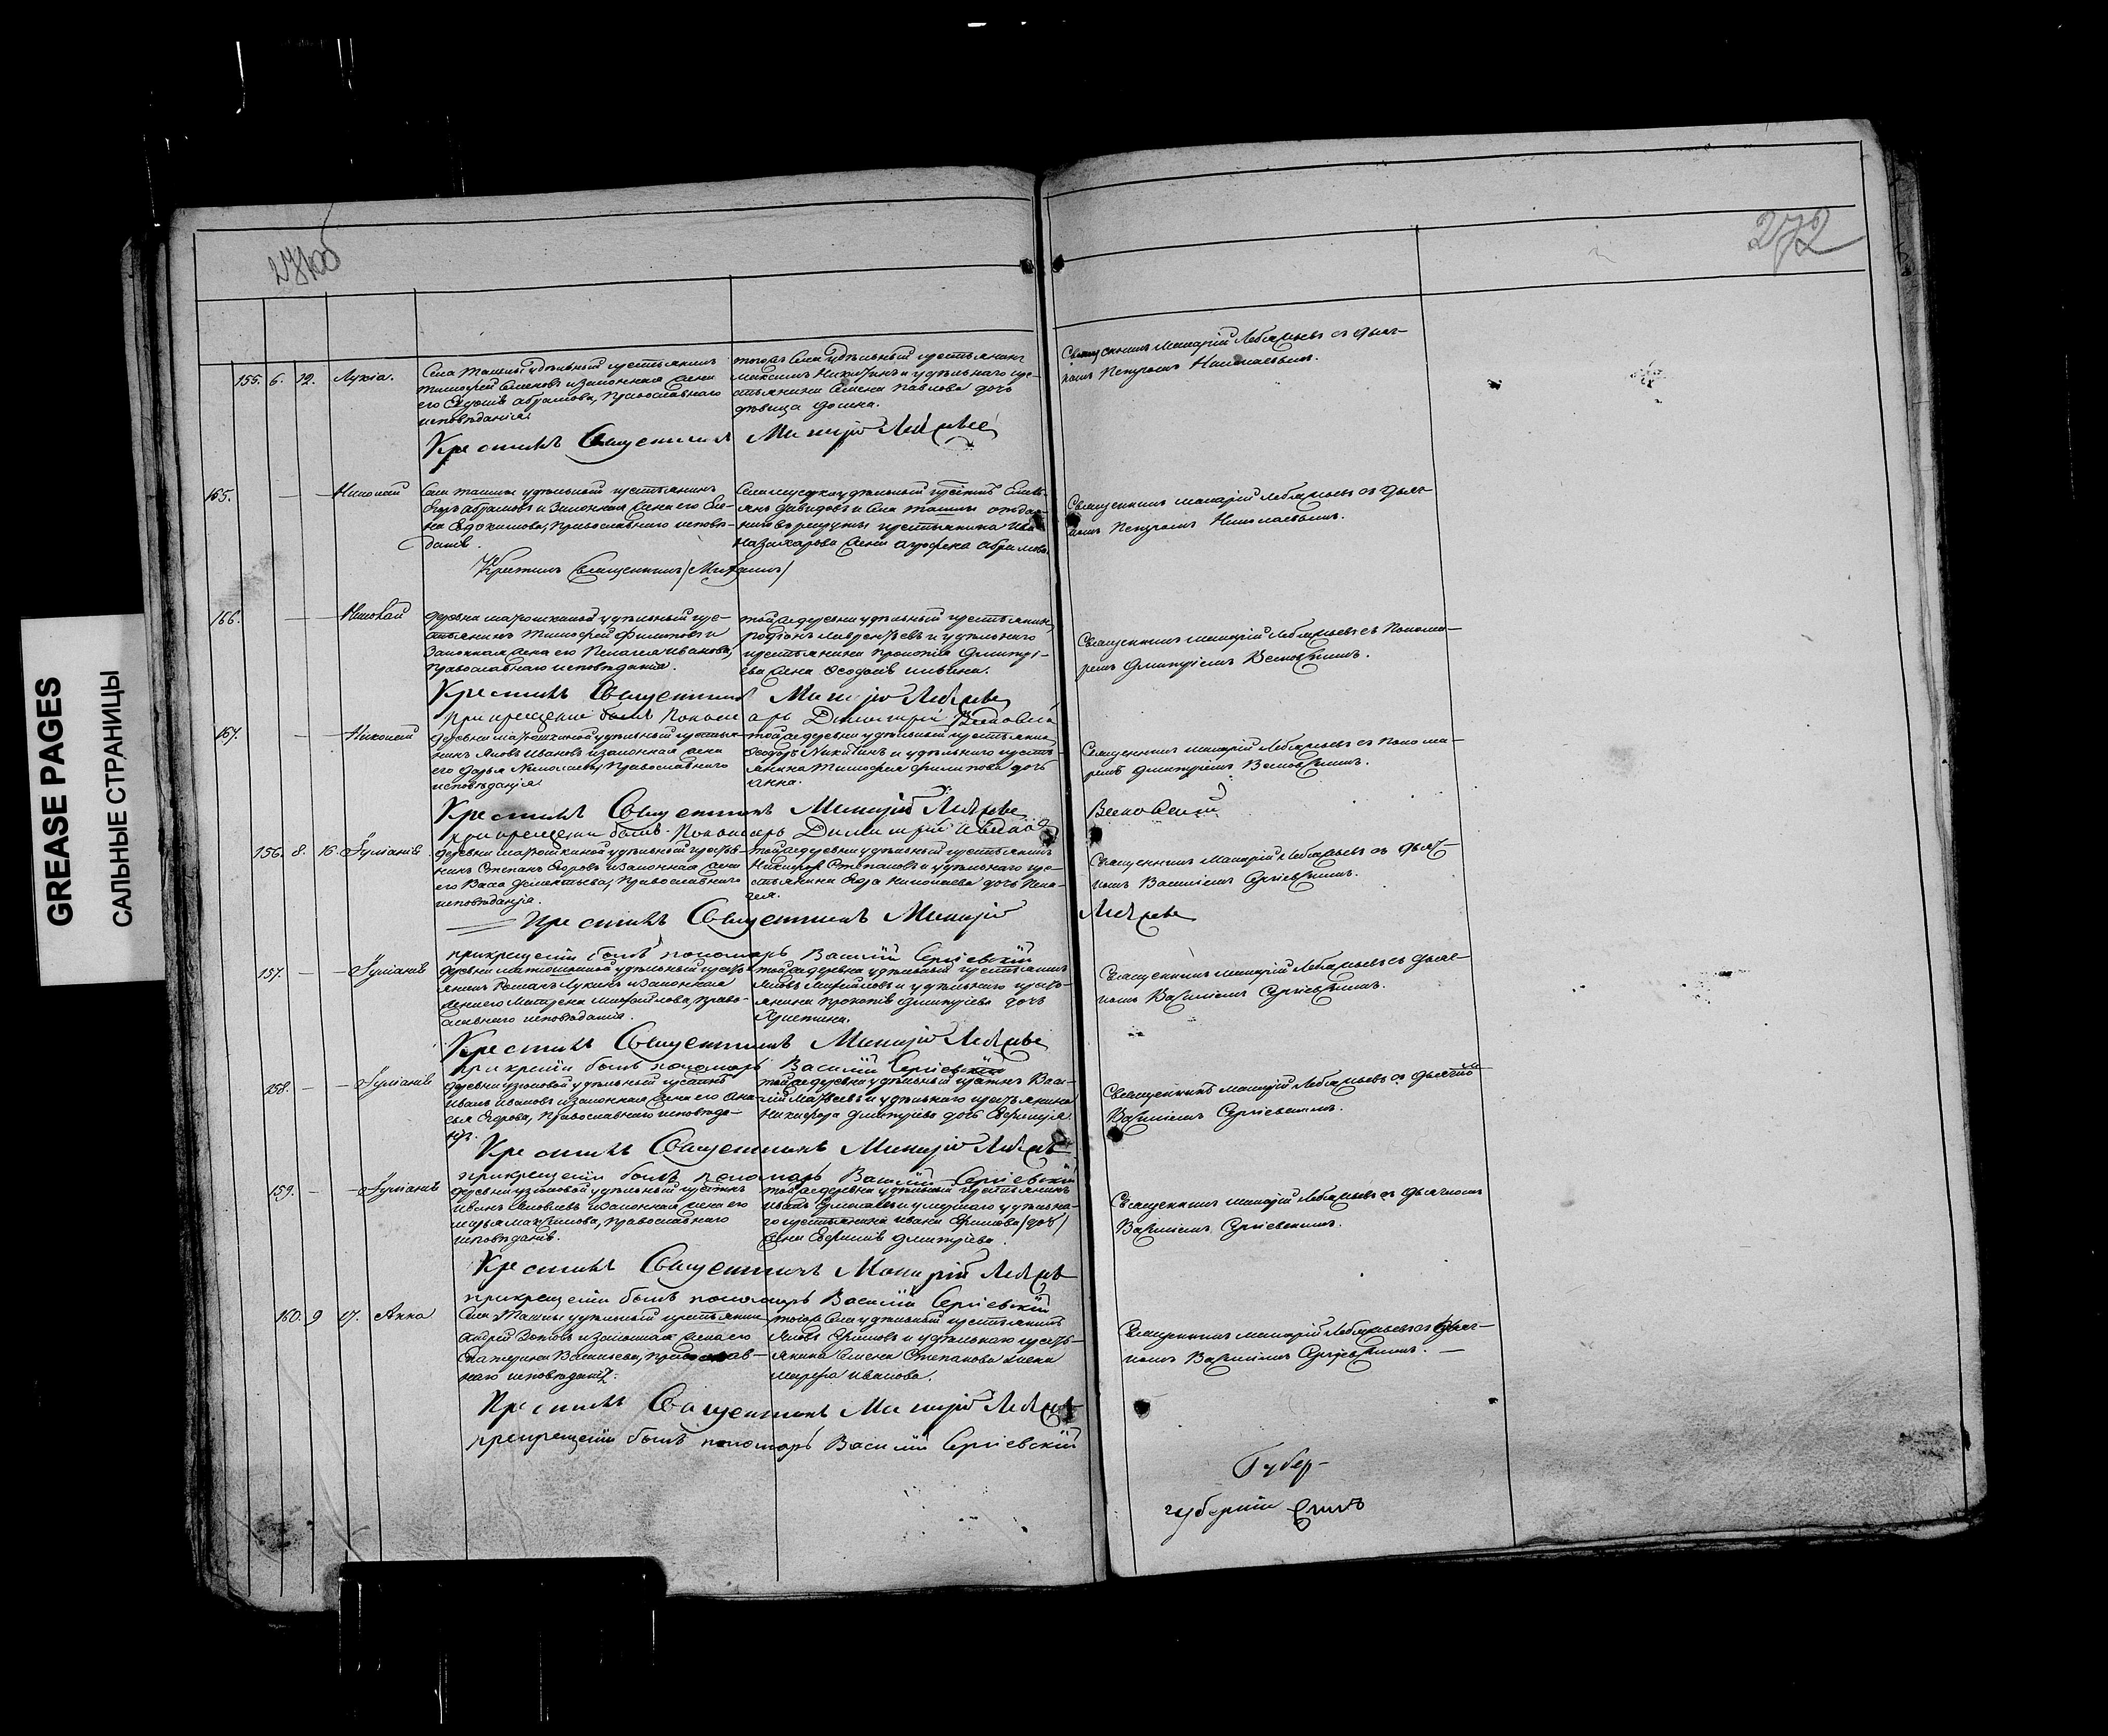 271об
272
GREASE PAGES
САЛЬНЫЕ СТРАНИЦЫ
155. 6. 12. Лукія.
Села Ташлы удѣльный крестьянинъ
Тимофей Семеновъ и законная жена
его Евдокія Абрамова, Православнаго
исповѣданія.
тогожъ Села удѣльный крестьянинъ
Максимъ Никитинъ и удѣльнаго кре-
стьянина Семена Павлова дочь
дѣвица
Священникъ Макарій Лебяжьевъ съ дьяч-
комъ Петромъ Николаевымъ.
Крестилъ Священникъ Макарій Лебяжьевъ
165. — — Николай
Села Ташлы удѣльный крестьянинъ
Егоръ Абрамовъ и Законная жена его Еле-
на Евдокимова, Православнаго исповѣ-
данія.
удѣльный
янъ Давидовъ и Села Ташлы отдан-
наго въ рекруты крестьянина Ива-
на Захарова жена Агафья Абрамова.
Священникъ Макарій Лебяжьевъ съ дьяч-
комъ Петромъ Николаевымъ.
Крестилъ Священникъ
166. — — Николай
деревни Матюшкиной удѣльный кре-
стьянинъ Тимофей Филиповъ и
Законная жена его Пелагея Иванова,
Православнаго исповѣданія.
тойже деревни удѣльный крестьянинъ
Родіонъ Лаврентьевъ и удѣльнаго
крестьянина Прокопія Дмитрі-
ева жена Ѳеодосія Ильина.
Священникъ Макарій Лебяжьевъ съ Понома-
ремъ Дмитріемъ
Крестилъ Священникъ Макарій Лебяжьевъ
при крещеніи былъ Пономарь Димитрій
167. — — Николай
деревни Матюшкиной удѣльный крестья-
нинъ Яковъ Ивановъ и законная жена
его Дарья Николаева, Православнаго
исповѣданія.
тойже деревни удѣльный крестьянинъ
Ѳеодоръ Никитинъ и удѣльнаго кресть-
янина Тимофея Филипова дочь
Анна.
Священникъ Макарій Лебяжьевъ съ Понома-
ремъ Дмитріемъ
Крестилъ Священникъ Макарій Лебяжьевъ
при крещеніи былъ Пономарь Димитрій
156. 8. 16. Іуліанія.
деревни Матюшкиной удѣльный кресть-
нинъ Степанъ Егоровъ и Законная жена
его Васса Дементьева, Православнаго
исповѣданія.
тойже деревни удѣльный крестьянинъ
Никифоръ Степановъ и удѣльнаго кре-
стьянина Егора Николаева дочь Пела-
гея.
Священникъ Макарій Лебяжьевъ съ дьяч-
комъ Василіемъ Сергіевскимъ.
Крестилъ Священникъ Макарій Лебяжьевъ
при крещеніи былъ пономарь Василій Сергіевскій
157. — — Іуліанія
деревни Матюшкиной удѣльный кресть-
янинъ Романъ Лукинъ и Законная
жена его Матрена Михайлова, Право-
славнаго исповѣданія.
тойже деревни удѣльный крестьянинъ
Яковъ Михайловъ и удѣльнаго кресть-
янина Прокопія Дмитріева дочь
Христина.
Священникъ Макарій Лебяжьевъ съ дьяч-
комъ Василіемъ Сергіевскимъ.
Крестилъ Священникъ Макарій Лебяжьевъ
при крещеніи былъ пономарь Василій Сергіевскій
158. — — Іуліанія
деревни Узюковой удѣльный
Иванъ Ивановъ и законная жена его
Егорова, Православнаго исповѣда-
нія.
тойже деревни удѣльный Васи-
лій Матвеевъ и удѣльнаго крестьянина
Никифора Дмитріева дочь Евфимія.
Священникъ Макарій Лебяжьевъ съ дьячкомъ
Василіемъ Сергіевскимъ.
Крестилъ Священникъ Макарій Лебяжьевъ
при крещеніи былъ пономарь Василій Сергіевскій
159. — — Іуліанія
деревни Узюковой удѣльный
Иванъ Яковлевъ и Законная жена его
Марья Максимова, Православнаго
исповѣданія.
тойже деревни удѣльный крестьянинъ
Иванъ и умершаго удѣльна-
го крестьянина Ивана Ефимова
жена Евфимія Дмитріева.
Священникъ Макарій Лебяжьевъ съ дьячкомъ
Василіемъ Сергіевскимъ.
Крестилъ Священникъ Макарій Лебяжьевъ
при крещеніи былъ пономарь Василій Сергіевскій
160. 9 17. Анна
Села Ташлы удѣльный крестьянинъ
Андрей и законная жена его
Екатерина Васильева, Православ-
наго исповѣданія.
тогожъ Села удѣльный крестьянинъ
Яковъ Ефимовъ и удѣльнаго кресть-
янина Семена Степанова жена
Марфа Иванова.
Священникъ Макарій Лебяжьевъ съ дьяч-
комъ Василіемъ Сергіевскимъ. —
Крестилъ Священникъ Макарій Лебяжьевъ
при крещеніи былъ пономарь Василій Сергіевскій
Губер-
губерніи